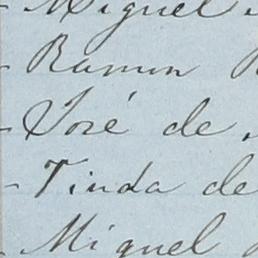 Miguel
Ramon
José de
Tinda de
Miguel